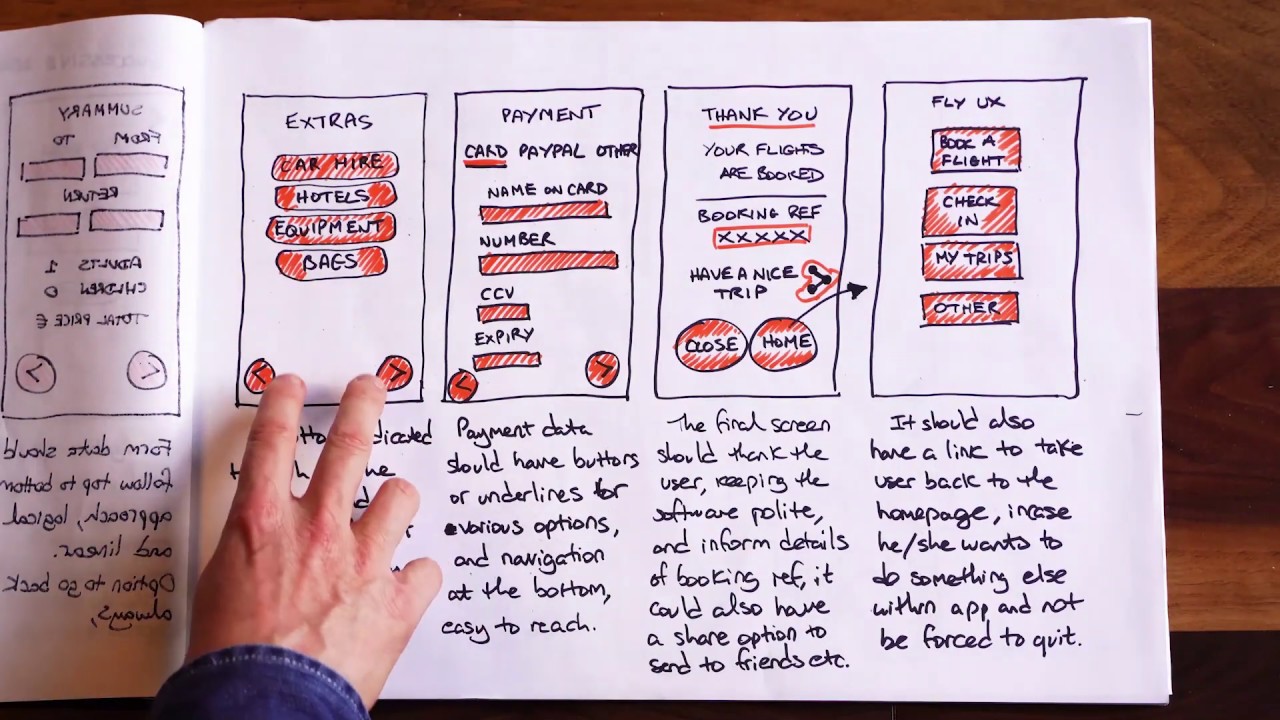 SUMMARY
FROM TO
RETURN
ADULTS 1
CHILDREN 0
TOTAL PRICE €
< >
Form data should
follow top to bottom
approach, logical
and linear.
Option to go back
always,
EXTRAS
CAR HIRE
HOTELS
EQUIPMENT
BAGS
< >
PAYMENT
CARD PAYPAL OTHER
NAME ON CARD
NUMBER
CCV
EXPIRY
< >
Payment data
should have buttons
or underlines for
various options,
and navigation
at the bottom,
easy to reach.
THANK YOU
YOUR FLIGHTS
ARE BOOKED
BOOKING REF
XXXXX
HAVE A NICE
TRIP
CLOSE HOME
The final screen
should thank the
user, keeping the
software polite,
and inform details
of booking ref, it
could also have
a share option to
send to friends etc.
FLY UX
BOOK A
FLIGHT
CHECK
IN
MY TRIPS
OTHER
It should also
have a link to take
user back to the
homepage, incase
he/she wants to
do something else
within app and not
be forced to quit.